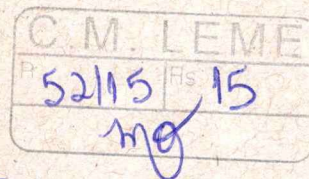 C. M. LEME
P 52/15 Fls 15